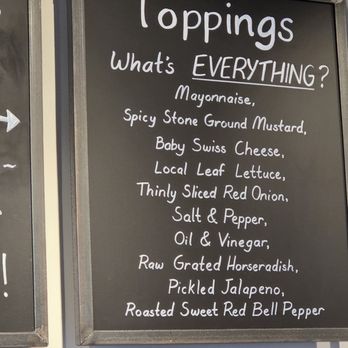 Toppings
What's EVERYTHING?
Mayonnaise,
Spicy Stone Ground Mustard,
Baby Swiss Cheese,
Local Leaf Lettuce,
Thinly Sliced Red Onion,
Salt & Pepper,
Oil & Vinegar,
Raw Grated Horseradish,
Pickled Jalapeno,
Roasted Sweet Red Bell Pepper
→
~
!